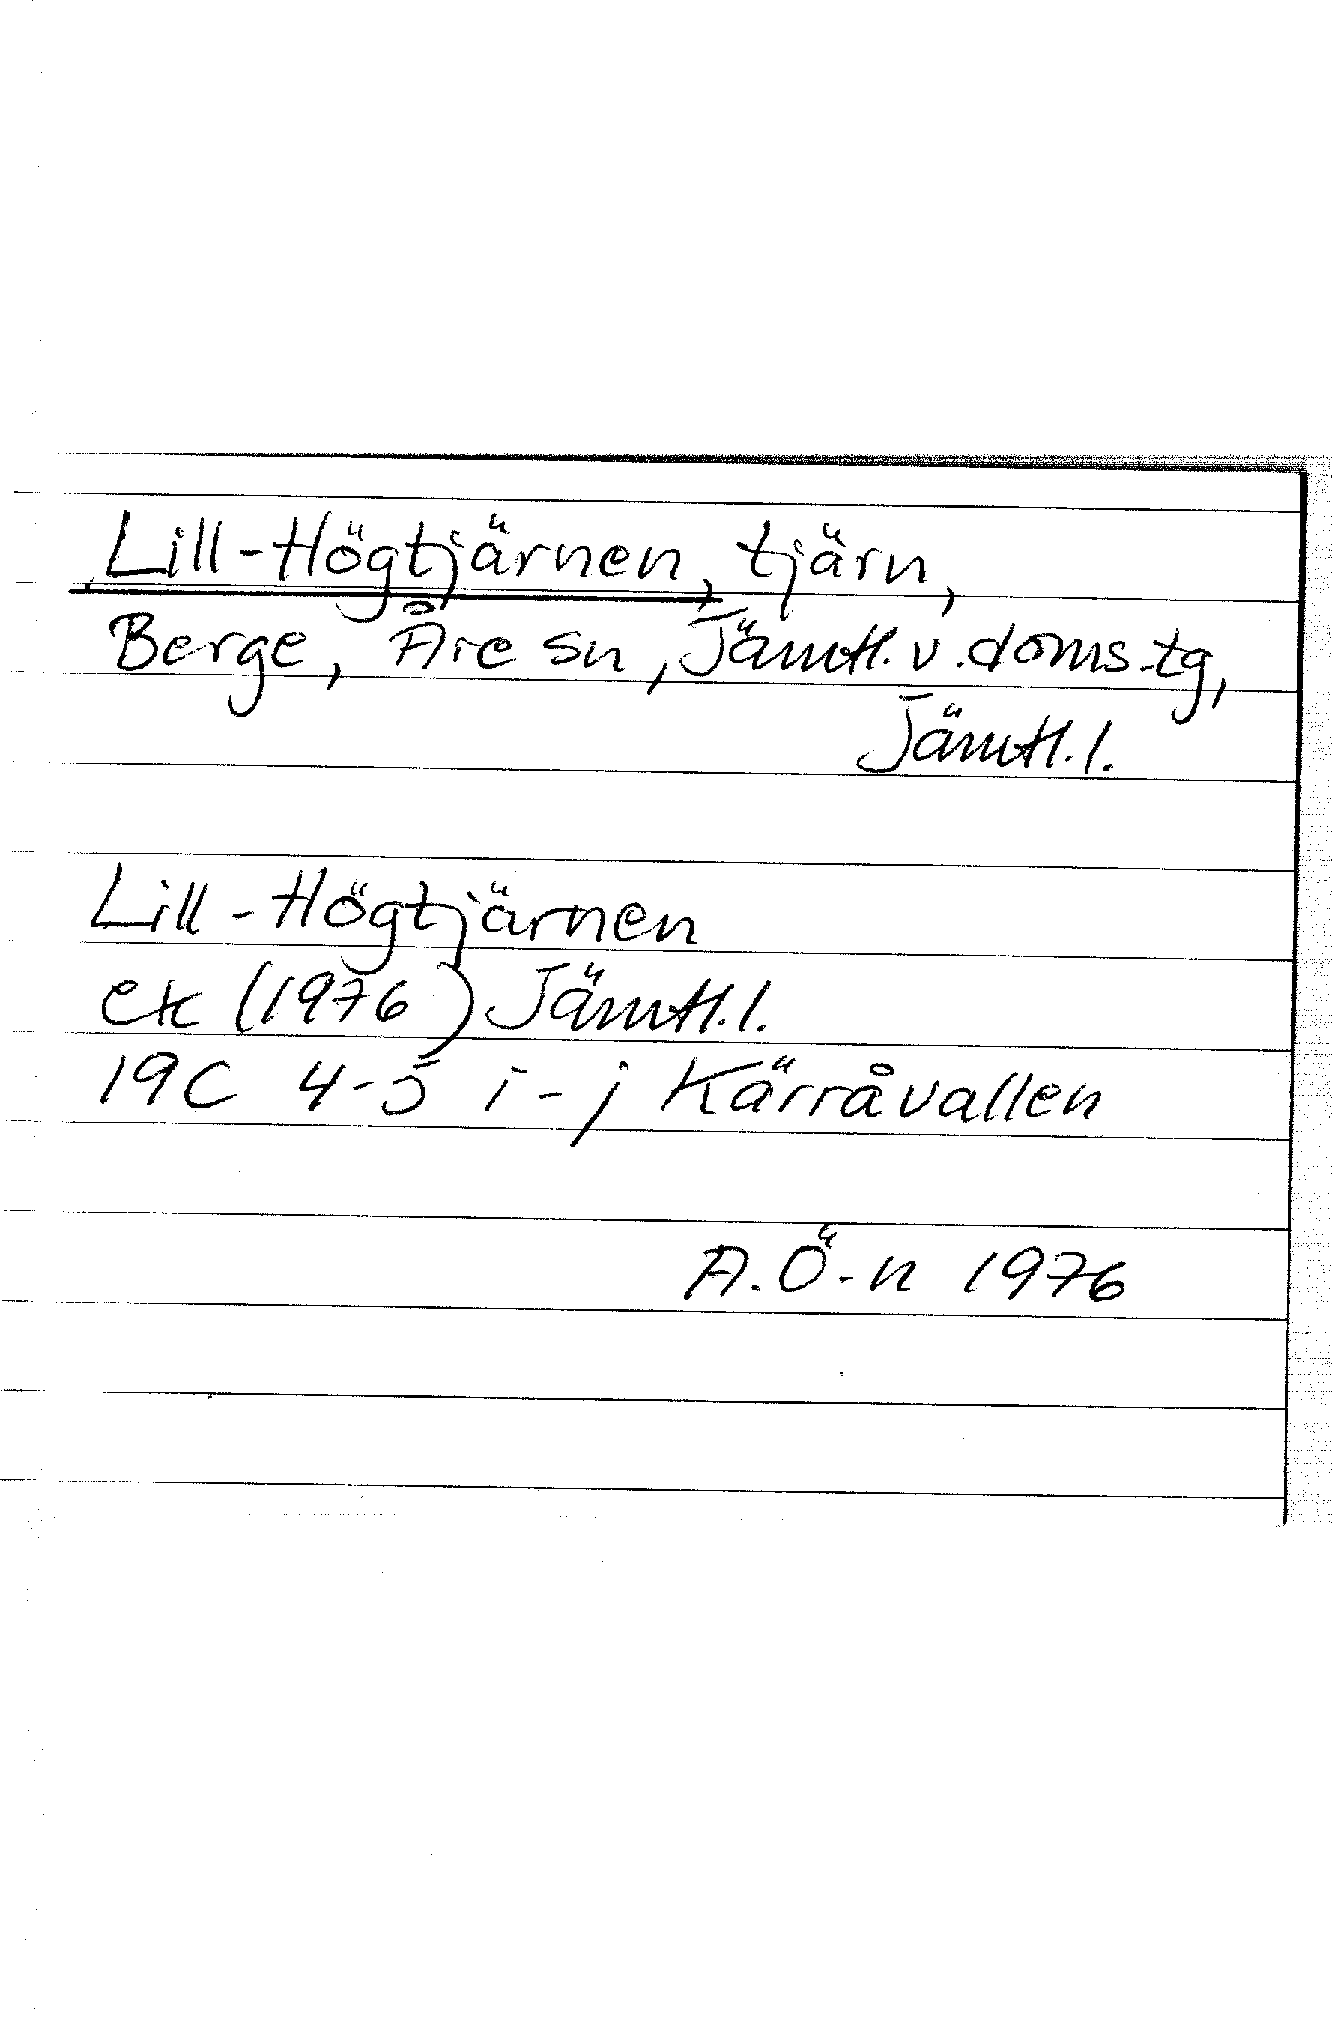 Lill-Högtjärnen, tjärn,
Berge, Åre sn, Jämtl. v. doms.tg,
Jämtl. l.
Lill-Högtjärnen
ek (1976) Jämtl. l.
19C 4-5 i-j Kärråvallen
A.Ö-n 1976